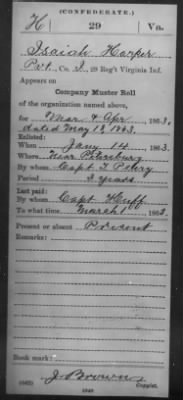 (CONFEDERATE.)
H 29 Va.
Isaiah Harper
Pvt., Co. I, 29 Reg't Virginia Inf.
Appears on
Company Muster Roll
of the organization named above,
for Mar & Apr, 1863.
dated May 18, 1863.
Enlisted:
When Jany 14, 1863.
Where Near Petersburg
By whom Capt T Peery
Period 3 years
Last paid:
By whom Capt Huff
To what time March 1, 1863.
Present or absent Present
Remarks:
Book mark:
J. Brown
(642) Copyist.